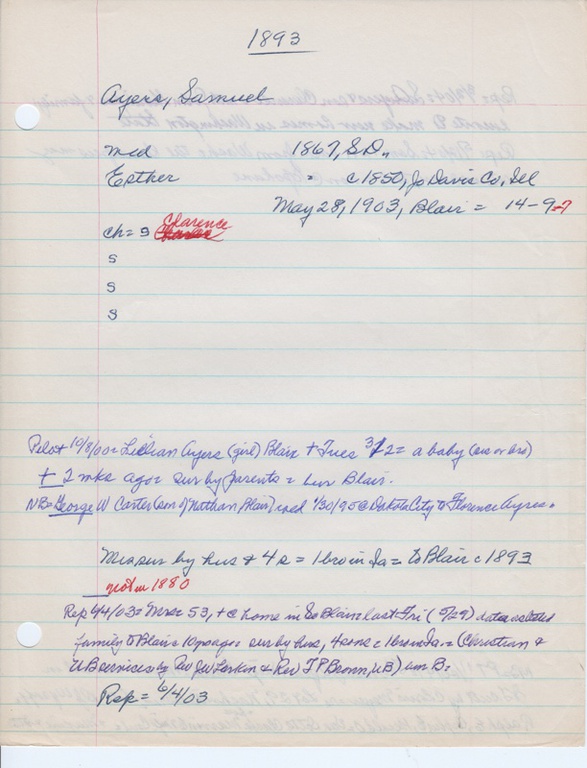 1893
Ayers, Samuel
med 1867, S.D.,
Esther = c1850, Jo Davis Co, Ill
May 28, 1903, Blair = 14-9-7
ch= s Clarence
s
s
s
Pilot 10/8/00= Lillian Ayers (girl) Blair + Tues = a baby (sis or bro)
+ 2 mks ago= sur by parents = Blair.
NB= George W Carter (son of Nathan, Blair) med 1/30/95 @ Dakota City to Florence Ayres.
Mrs= sur by hus & 4 s = 1 bro in Ia = to Blair c1893
not in 1880
Rep 6/4/03= Mrs= 53, + @ home in So Blair last Fri (5/29) date as stated
family to Blair c 10 yrs ago= sur by hus, 4 sons = 1 bro in Ia = (Christian &
UB services by Rev JW Larkin & Rev FP Brown, UB) B=
Rep = 6/4/03